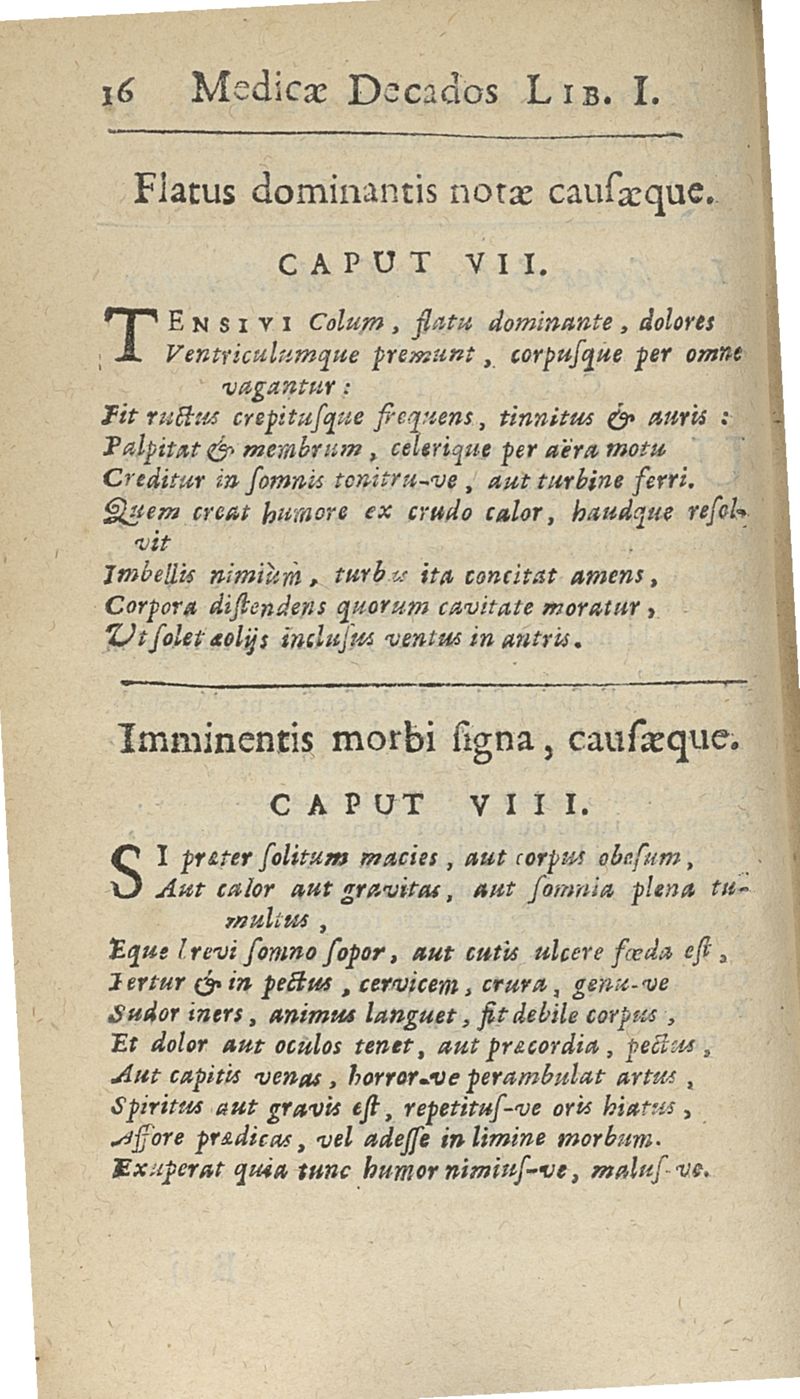 16 Medicæ Decados LIB. I.
Flatus dominantis notæ cauſæque.
CAPUT VII.
TENSIVI Colum, flatu dominante, dolores
Ventriculumque premunt, corpuſque per omne
vagantur:
Fit ructus crepituſque frequens, tinnitus & auris:
Palpitat & membrum, celerique per aëra motu
Creditur in ſomnis tonitru-ve, aut turbine ferri.
Quem creat humore ex crudo calor, haudque reſol-
vit
Imbellis nimiùm, turbas ita concitat amens,
Corpora diſtendens quorum cavitate moratur,
Ut ſolet æolijs incluſus ventus in antris.
Imminentis morbi ſigna, cauſæque.
CAPUT VIII.
SI præter ſolitum macies, aut corpus obæſum,
Aut calor aut gravitas, aut ſomnia plena tu-
multus,
Eque brevi ſomno ſopor, aut cutis ulcere fœda eſt,
Fertur & in pectus, cervicem, crura, genu-ve
Sudor iners, animus languet, fit debile corpus,
Et dolor aut oculos tenet, aut præcordia, pectus,
Aut capitis venas, horror-ve perambulat artus,
Spiritus aut gravis eſt, repetituſ-ve oris hiatus,
Affore prædicas, vel adeſſe in limine morbum.
Exuperat quia tunc humor nimiuſ-ve, maluſ-ve.